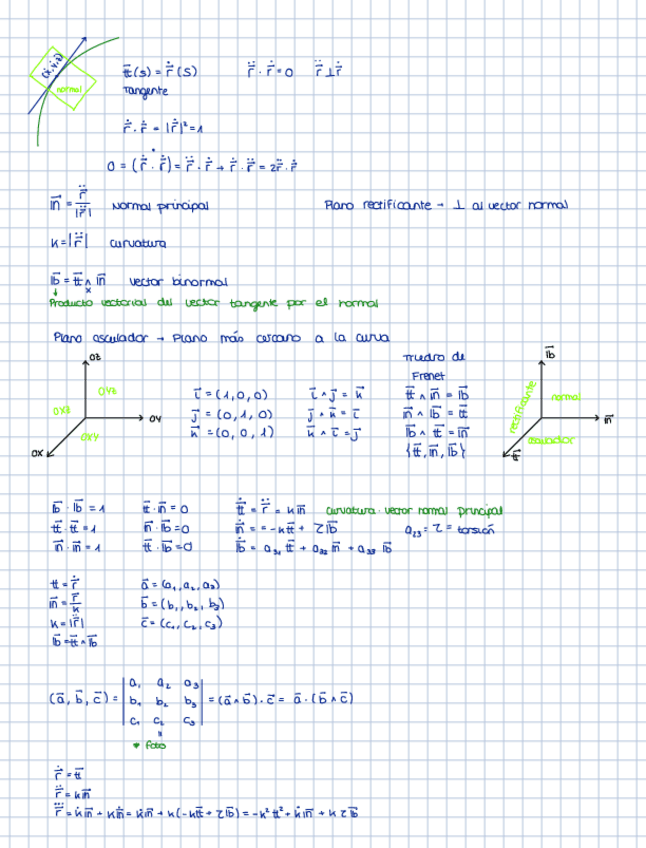 (ẋ, ẏ, ż)
normal
t⃗(s) = ṙ⃗(s)   r̈⃗ · ṙ⃗ = 0   r̈⃗ ⊥ ṙ⃗
Tangente
ṙ⃗ · ṙ⃗ = |ṙ⃗|² = 1
0 = (ṙ⃗ · ṙ⃗)˙ = r̈⃗ · ṙ⃗ + ṙ⃗ · r̈⃗ = 2r̈⃗ · ṙ⃗
n⃗ = r̈⃗ / |r̈⃗|   Normal principal   Plano rectificante → ⊥ al vector normal
k = |r̈⃗|   curvatura
b⃗ = t⃗ ∧ n⃗   vector binormal
x
Producto vectorial del vector tangente por el normal
Plano osculador → Plano más cercano a la curva
OZ
OYZ
OXZ
OXY
OY
OX
i⃗ = (1,0,0)   i⃗ ∧ j⃗ = k⃗
j⃗ = (0,1,0)   j⃗ ∧ k⃗ = i⃗
k⃗ = (0,0,1)   k⃗ ∧ i⃗ = j⃗
Triedro de
Frenet
t⃗ ∧ n⃗ = b⃗
n⃗ ∧ b⃗ = t⃗
b⃗ ∧ t⃗ = n⃗
{t⃗, n⃗, b⃗}
b⃗
rectificante
normal
n⃗
osculador
t⃗
b⃗ · b⃗ = 1   t⃗ · n⃗ = 0   ṫ⃗ = r̈⃗ = kn⃗   curvatura · vector normal principal
t⃗ · t⃗ = 1   n⃗ · b⃗ = 0   ṅ⃗ = -kt⃗ + τb⃗   a₂₃ = τ = torsión
n⃗ · n⃗ = 1   t⃗ · b⃗ = 0   ḃ⃗ = a₃₁ t⃗ + a₃₂ n⃗ + a₃₃ b⃗
t⃗ = ṙ⃗   a⃗ = (a₁, a₂, a₃)
n⃗ = r̈⃗ / k   b⃗ = (b₁, b₂, b₃)
k = |r̈⃗|   c⃗ = (c₁, c₂, c₃)
b⃗ = t⃗ ∧ n⃗
(a⃗, b⃗, c⃗) = | a₁ a₂ a₃ |
| b₁ b₂ b₃ | = (a⃗ ∧ b⃗) · c⃗ = a⃗ · (b⃗ ∧ c⃗)
| c₁ c₂ c₃ |
"
* foto
ṙ⃗ = t⃗
r̈⃗ = kn⃗
r⃛ = k̇n⃗ + kṅ⃗ = k̇n⃗ + k(-kt⃗ + τb⃗) = -k²t⃗ + k̇n⃗ + kτb⃗